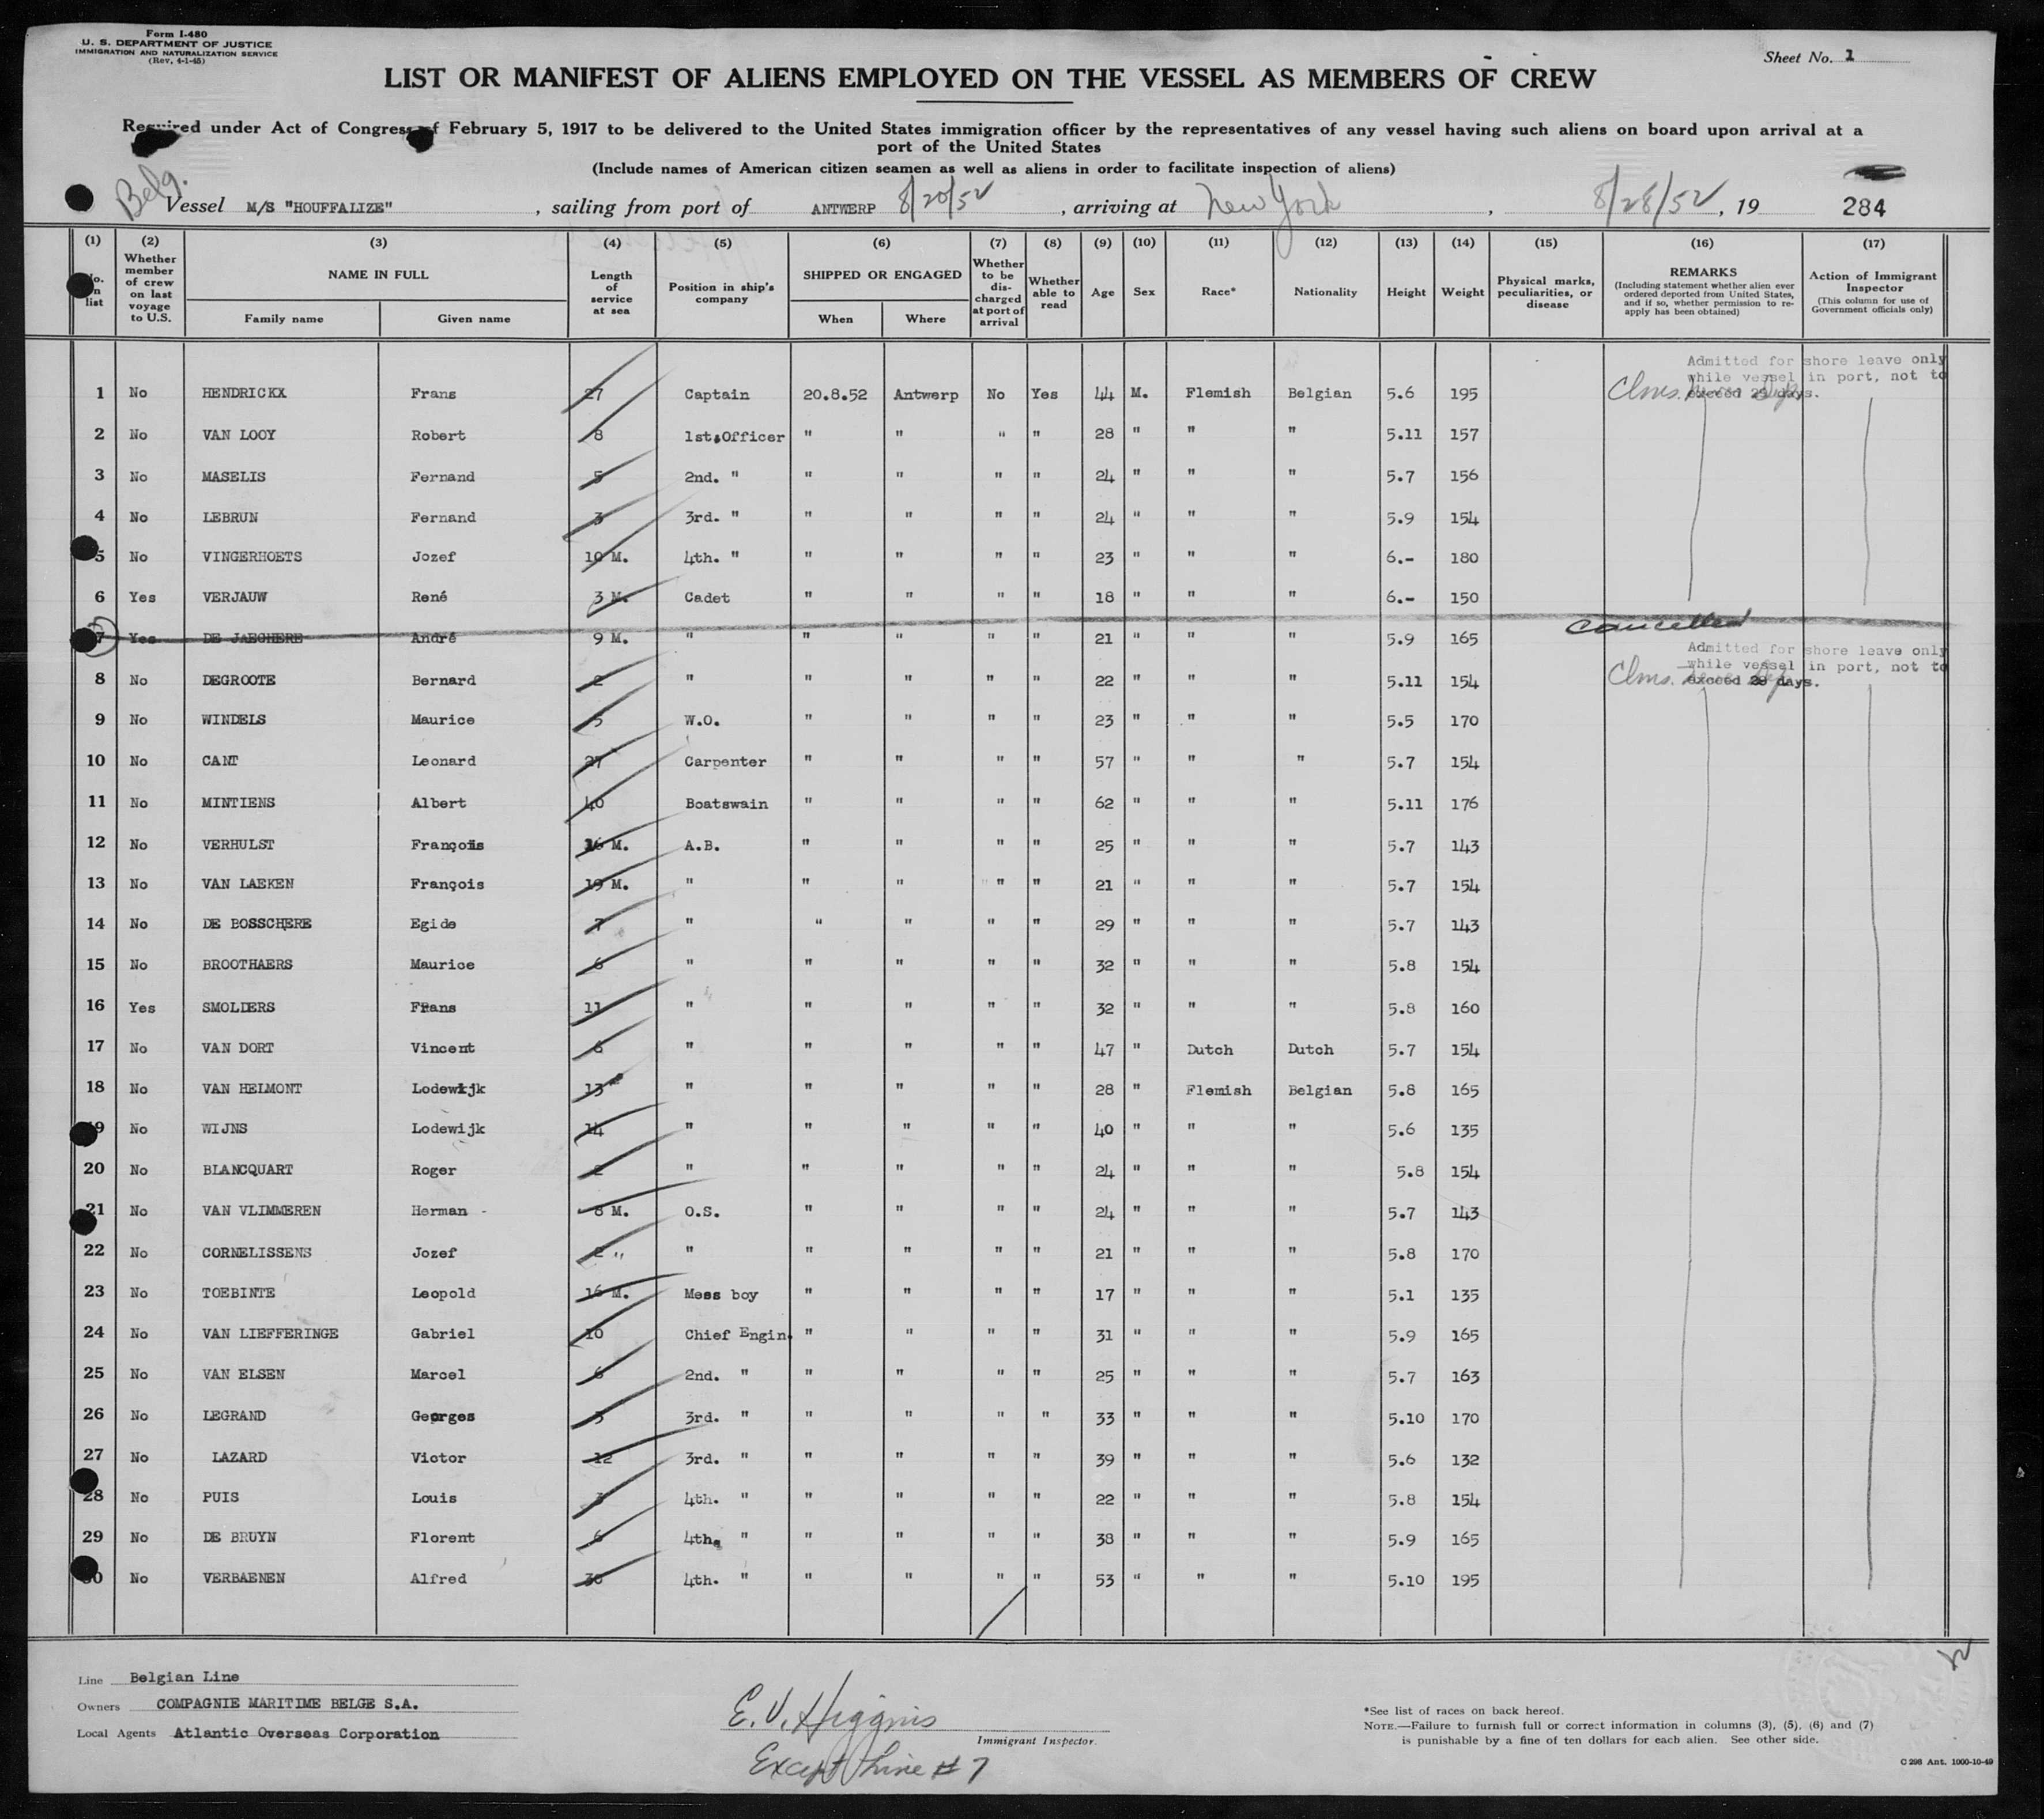 Form I-480
U. S. DEPARTMENT OF JUSTICE
IMMIGRATION AND NATURALIZATION SERVICE
(Rev. 4-1-45)
Sheet No. 1
LIST OR MANIFEST OF ALIENS EMPLOYED ON THE VESSEL AS MEMBERS OF CREW
Required under Act of Congress of February 5, 1917 to be delivered to the United States immigration officer by the representatives of any vessel having such aliens on board upon arrival at a
port of the United States
(Include names of American citizen seamen as well as aliens in order to facilitate inspection of aliens)
Belg.
Vessel M/S "HOUFFALIZE" , sailing from port of ANTWERP 8/20/52 , arriving at New York , 8/28/52 , 19 284
(1) (2) (3) (4) (5) (6) (7) (8) (9) (10) (11) (12) (13) (14) (15) (16) (17)
No. on list
Whether member of crew on last voyage to U.S.
NAME IN FULL
Family name Given name
Length of service at sea
Position in ship's company
SHIPPED OR ENGAGED
When Where
Whether to be discharged at port of arrival
Whether able to read
Age Sex Race* Nationality Height Weight
Physical marks, peculiarities, or disease
REMARKS
(Including statement whether alien ever ordered deported from United States, and if so, whether permission to reapply has been obtained)
Action of Immigrant Inspector
(This column for use of Government officials only)
Admitted for shore leave only
while vessel in port, not to
exceed 29 days.
1 No HENDRICKX Frans 27 Captain 20.8.52 Antwerp No Yes 44 M. Flemish Belgian 5.6 195 Clms.
2 No VAN LOOY Robert 8 1st.Officer " " " " 28 " " " 5.11 157
3 No MASELIS Fernand 5 2nd. " " " " " 24 " " " 5.7 156
4 No LEBRUN Fernand 3 3rd. " " " " " 24 " " " 5.9 154
5 No VINGERHOETS Jozef 10 M. 4th. " " " " " 23 " " " 6.- 180
6 Yes VERJAUW René 3 M. Cadet " " " " 18 " " " 6.- 150
7 Yes DE JAEGHERE André 9 M. " " " " " 21 " " " 5.9 165 Cancelled
Admitted for shore leave only
while vessel in port, not to
exceed 29 days.
8 No DEGROOTE Bernard 2 " " " " " 22 " " " 5.11 154 Clms.
9 No WINDELS Maurice 5 W.O. " " " " 23 " " " 5.5 170
10 No CANT Leonard 27 Carpenter " " " " 57 " " " 5.7 154
11 No MINTIENS Albert 40 Boatswain " " " " 62 " " " 5.11 176
12 No VERHULST François 16 M. A.B. " " " " 25 " " " 5.7 143
13 No VAN LAEKEN François 19 M. " " " " " 21 " " " 5.7 154
14 No DE BOSSCHERE Egide 7 " " " " " 29 " " " 5.7 143
15 No BROOTHAERS Maurice 6 " " " " " 32 " " " 5.8 154
16 Yes SMOLDERS Frans 11 " " " " " 32 " " " 5.8 160
17 No VAN DORT Vincent 6 " " " " " 47 " Dutch Dutch 5.7 154
18 No VAN HELMONT Lodewijk 13 " " " " " 28 " Flemish Belgian 5.8 165
19 No WIJNS Lodewijk 14 " " " " " 40 " " " 5.6 135
20 No BLANCQUART Roger 2 " " " " " 24 " " " 5.8 154
21 No VAN VLIMMEREN Herman - 8 M. O.S. " " " " 24 " " " 5.7 143
22 No CORNELISSENS Jozef 2 " " " " " " 21 " " " 5.8 170
23 No TOEBINTE Leopold 16 M. Mess boy " " " " 17 " " " 5.1 135
24 No VAN LIEFFERINGE Gabriel 10 Chief Engin. " " " " 31 " " " 5.9 165
25 No VAN ELSEN Marcel 6 2nd. " " " " " 25 " " " 5.7 163
26 No LEGRAND Georges 5 3rd. " " " " " 33 " " " 5.10 170
27 No LAZARD Victor 12 3rd. " " " " " 39 " " " 5.6 132
28 No PUIS Louis 3 4th. " " " " " 22 " " " 5.8 154
29 No DE BRUYN Florent 6 4th. " " " " " 38 " " " 5.9 165
30 No VERBAENEN Alfred 36 4th. " " " " " 53 " " " 5.10 195
Line Belgian Line
Owners COMPAGNIE MARITIME BELGE S.A.
Local Agents Atlantic Overseas Corporation
E. V. Higgins
Immigrant Inspector.
Except Line # 7
*See list of races on back hereof.
NOTE.—Failure to furnish full or correct information in columns (3), (5), (6) and (7)
is punishable by a fine of ten dollars for each alien. See other side.
C 298 Ant. 1000-10-49